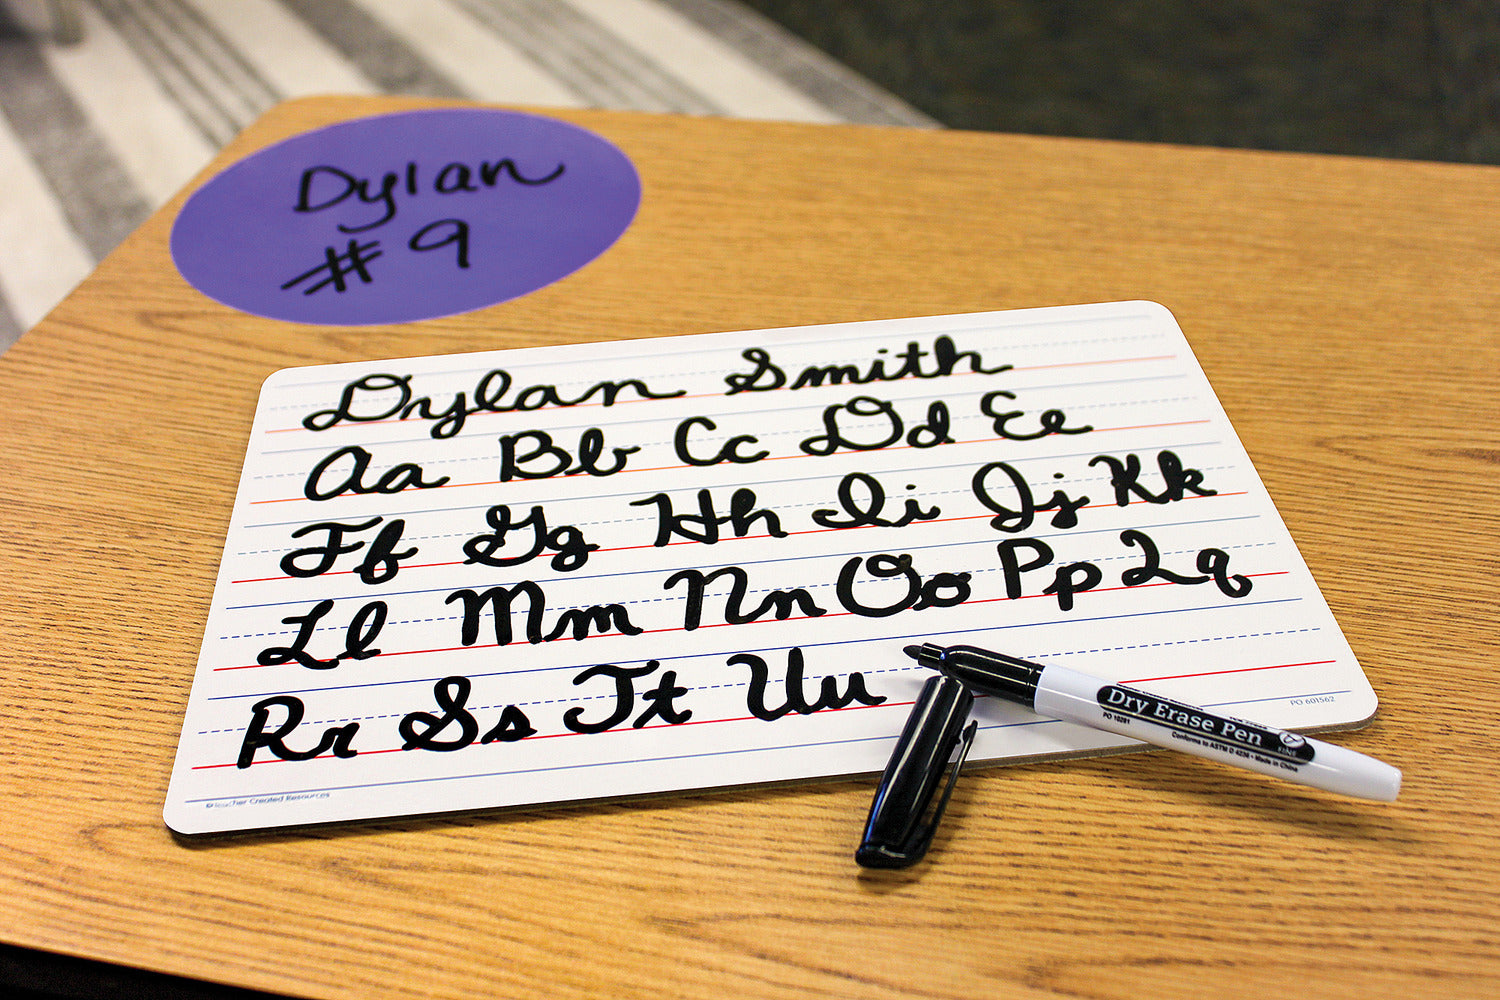 Dylan
# 9
Dylan Smith
Aa Bb Cc Dd Ee
Ff Gg Hh Ii Jj Kk
Ll Mm Nn Oo Pp Qq
Rr Ss Tt Uu
©Teacher Created Resources
PO 601562
Dry Erase Pen
PO 10281
Conforms to ASTM D 4236 • Made in China